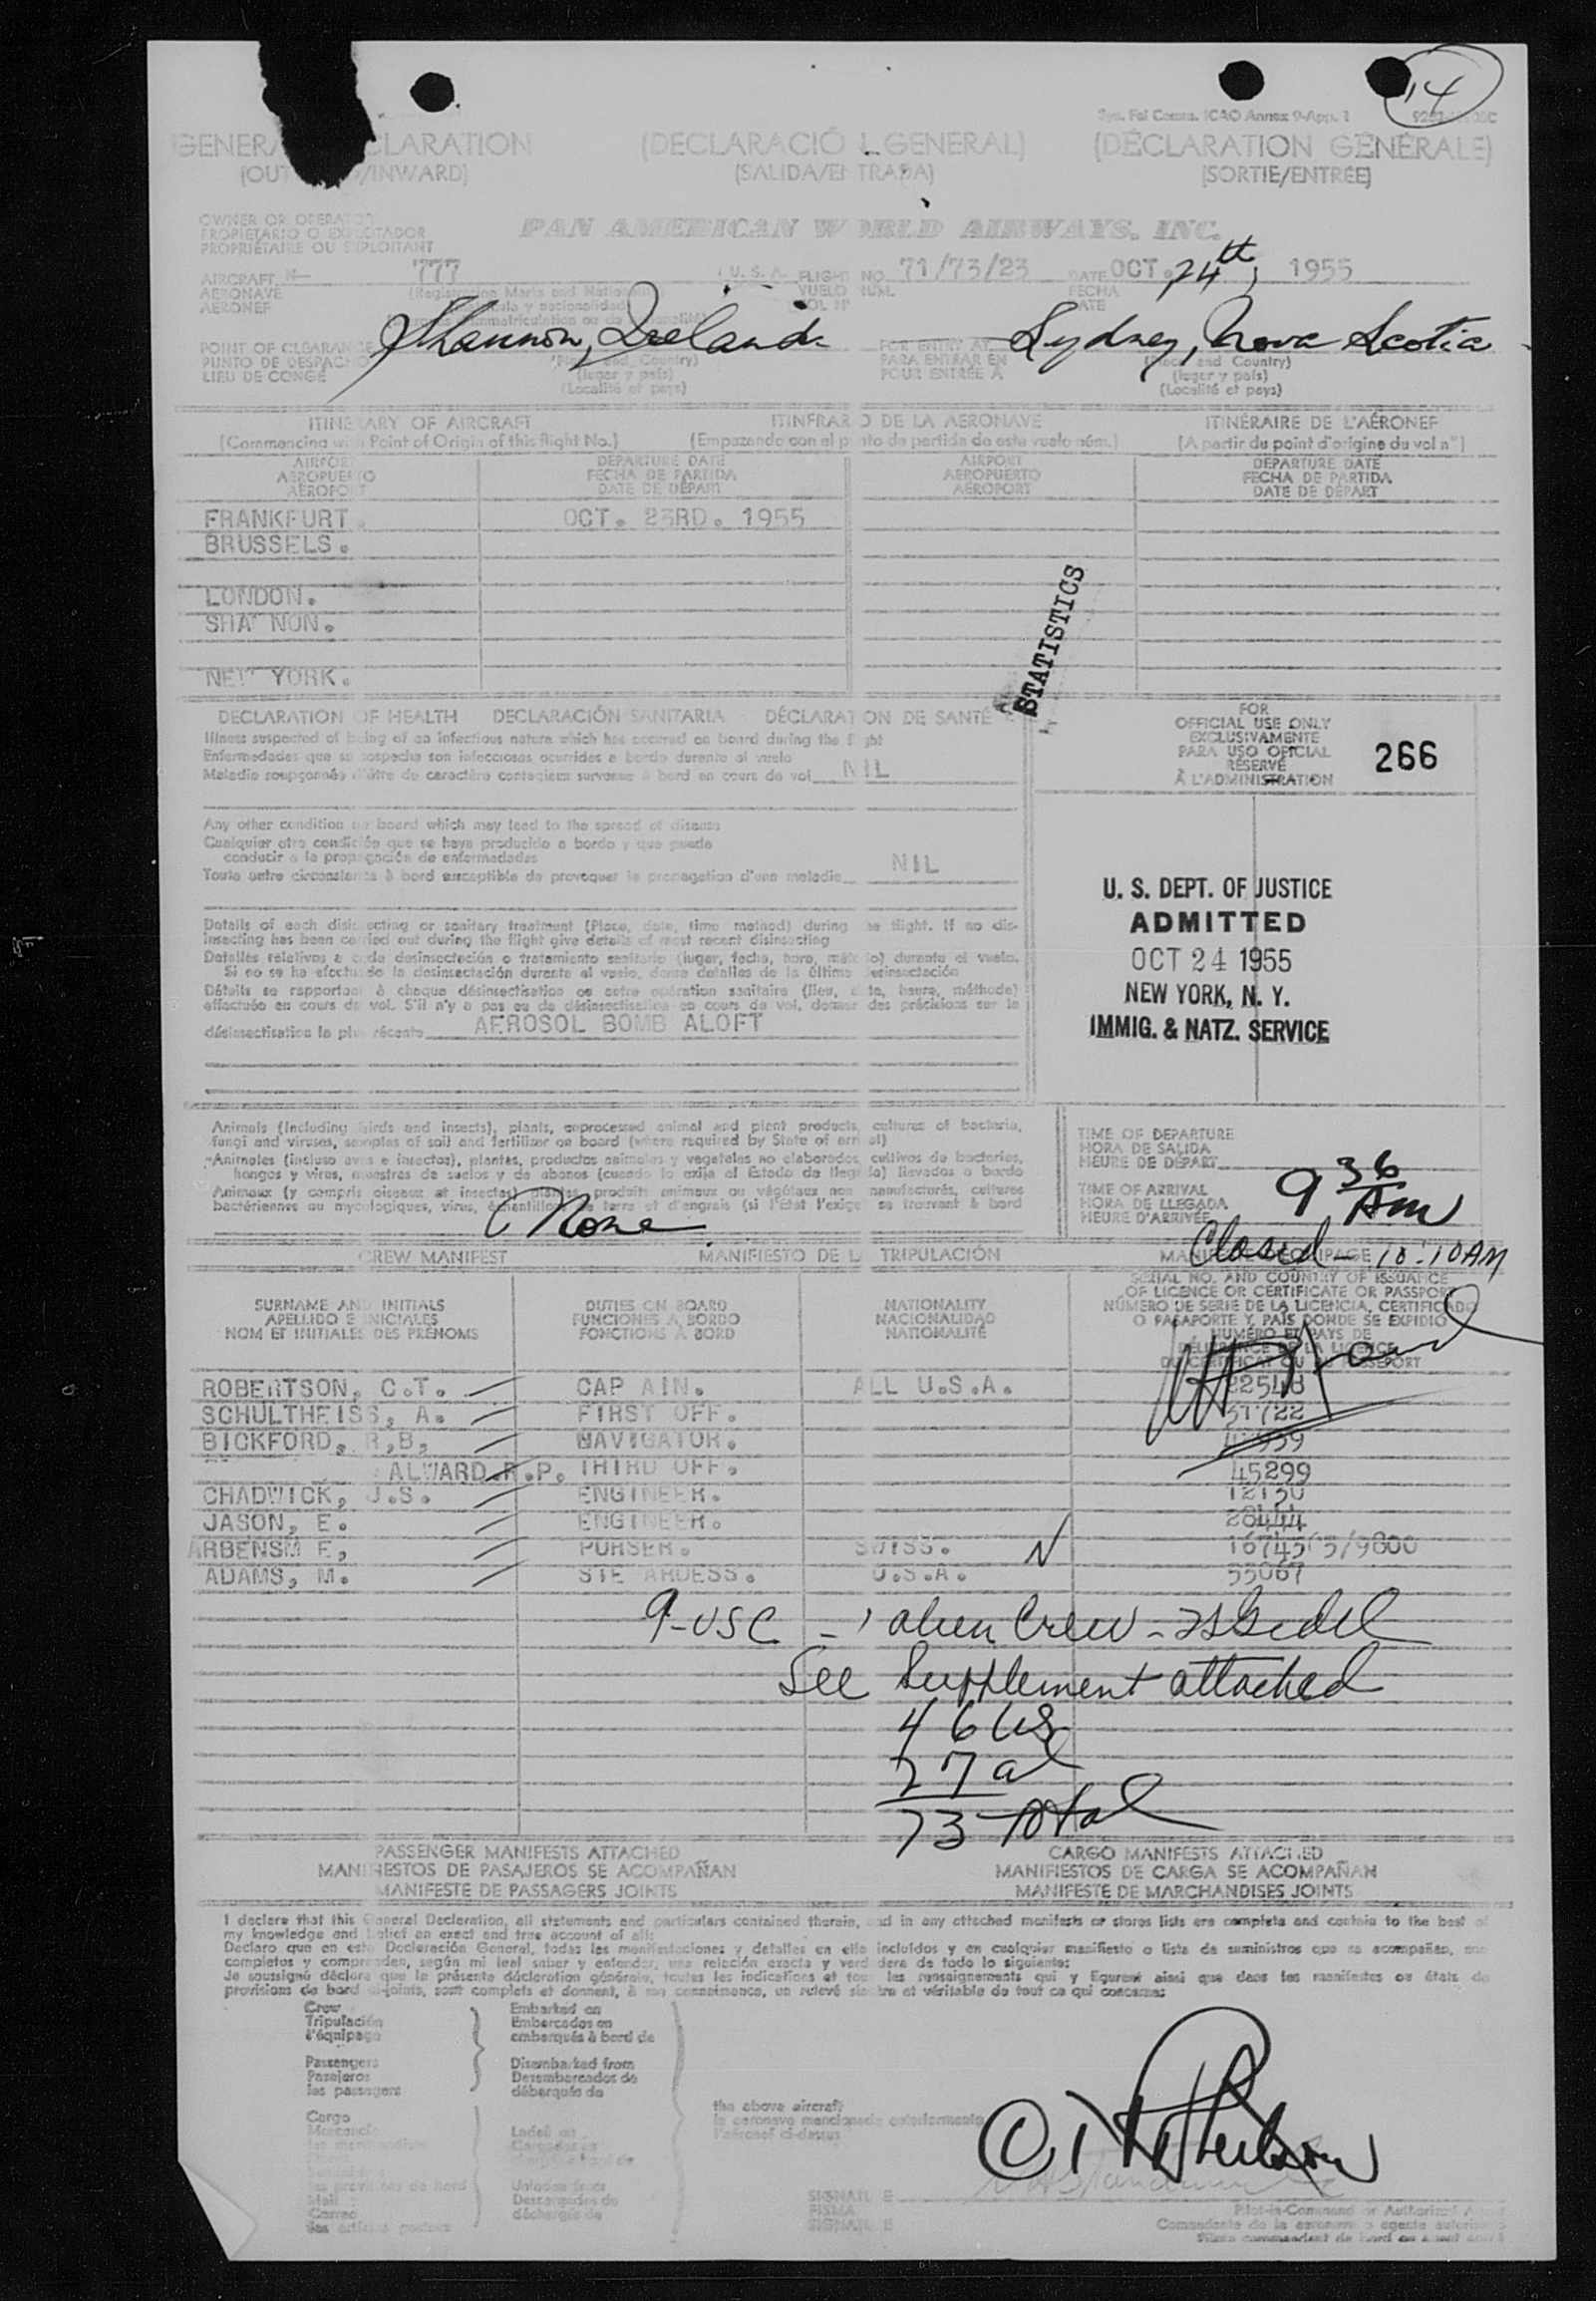 14
ICAO Annex 9-App. 1
GENERAL DECLARATION (DECLARACIÓN GENERAL) (DÉCLARATION GÉNÉRALE)
(OUTWARD/INWARD) (SALIDA/ENTRADA) (SORTIE/ENTRÉE)
OWNER OR OPERATOR
PROPIETARIO O EXPLOTADOR
PROPRIÉTAIRE OU EXPLOITANT
PAN AMERICAN WORLD AIRWAYS, INC.
AIRCRAFT N- 777 (U.S.A. FLIGHT NO. 71/73/23 DATE OCT. 24th, 1955
AERONAVE (Registration Marks and Nationality) VUELO NÚM. FECHA
AÉRONEF VOL Nº DATE
POINT OF CLEARANCE Shannon, Ireland FOR ENTRY AT Sydney, Nova Scotia
PUNTO DE DESPACHO (Place and Country) PARA ENTRAR EN (Place and Country)
LIEU DE CONGÉ (lugar y país) POUR ENTRÉE À (lugar y país)
(Localité et pays) (Localité et pays)
ITINERARY OF AIRCRAFT ITINERARIO DE LA AERONAVE ITINÉRAIRE DE L'AÉRONEF
(Commencing with Point of Origin of this flight No.) (Empezando con el punto de partida de este vuelo núm.) (A partir du point d'origine du vol nº)
AIRPORT DEPARTURE DATE AIRPORT DEPARTURE DATE
AEROPUERTO FECHA DE PARTIDA AEROPUERTO FECHA DE PARTIDA
AÉROPORT DATE DE DÉPART AÉROPORT DATE DE DÉPART
FRANKFURT. OCT. 23RD. 1955
BRUSSELS.
LONDON.
SHA NON.
NEW YORK.
STATISTICS
DECLARATION OF HEALTH DECLARACIÓN SANITARIA DÉCLARATION DE SANTÉ
Illness suspected of being of an infectious nature which has occurred on board during the flight
Enfermedades que se sospecha son infecciosas ocurridas a bordo durante el vuelo
Maladie soupçonnée d'être de caractère contagieux survenue à bord en cours de vol NIL
FOR
OFFICIAL USE ONLY
EXCLUSIVAMENTE
PARA USO OFICIAL
RÉSERVÉ
À L'ADMINISTRATION
266
Any other condition on board which may lead to the spread of disease
Cualquier otra condición que se haya producido a bordo y que puede
conducir a la propagación de enfermedades
Toute autre circonstance à bord susceptible de provoquer la propagation d'une maladie NIL
U. S. DEPT. OF JUSTICE
ADMITTED
OCT 24 1955
NEW YORK, N. Y.
IMMIG. & NATZ. SERVICE
Details of each disinsecting or sanitary treatment (Place, date, time method) during the flight. If no dis-
insecting has been carried out during the flight give details of most recent disinsecting
Detalles relativos a cada desinsectación o tratamiento sanitario (lugar, fecha, hora, método) durante el vuelo.
Si no se ha efectuado la desinsectación durante el vuelo, dense detalles de la última desinsectación
Détails se rapportant à chaque désinsectisation ou autre opération sanitaire (lieu, date, heure, méthode)
effectuée en cours de vol. S'il n'y a pas eu de désinsectisation en cours de vol, donner des précisions sur la
désinsectisation la plus récente AEROSOL BOMB ALOFT
Animals (including birds and insects), plants, unprocessed animal and plant products, cultures of bacteria,
fungi and viruses, samples of soil and fertilizer on board (where required by State of arrival)
Animales (incluso aves e insectos), plantas, productos animales y vegetales no elaborados, cultivos de bacterias,
hongos y virus, muestras de suelos y de abonos (cuando lo exija el Estado de llegada) llevados a bordo
Animaux (y compris oiseaux et insectes) plantes, produits animaux ou végétaux non manufacturés, cultures
bactériennes ou mycologiques, virus, échantillons de terre et d'engrais (si l'État l'exige) se trouvant à bord
None
TIME OF DEPARTURE
HORA DE SALIDA
HEURE DE DÉPART
TIME OF ARRIVAL
HORA DE LLEGADA
HEURE D'ARRIVÉE
9 36 AM
Closed - 10:10 AM
CREW MANIFEST MANIFIESTO DE LA TRIPULACIÓN
SURNAME AND INITIALS DUTIES ON BOARD NATIONALITY SERIAL NO. AND COUNTRY OF ISSUANCE
APELLIDO E INICIALES FUNCIONES A BORDO NACIONALIDAD OF LICENCE OR CERTIFICATE OR PASSPORT
NOM ET INITIALES DES PRÉNOMS FONCTIONS À BORD NATIONALITÉ NÚMERO DE SERIE DE LA LICENCIA, CERTIFICADO
O PASAPORTE Y PAÍS DONDE SE EXPIDIÓ
NUMÉRO ET PAYS DE
DÉLIVRANCE DE LA LICENCE
DU CERTIFICAT OU PASSEPORT
ROBERTSON, C.T. CAP AIN. ALL U.S.A. 22548
SCHULTHEISS, A. FIRST OFF. 31722
BICKFORD, R,B, NAVIGATOR.
ALWARD.R.P. THIRD OFF. 45299
CHADWICK, J.S. ENGINEER. 12130
JASON, E. ENGINEER. 28444
ARBENSM E, PURSER. SWISS.
ADAMS, M. STE ARDESS. U.S.A. 55067
9-USC - 1 alien Crew -
See Supplement attached
46 US
27 al
73 Total
PASSENGER MANIFESTS ATTACHED CARGO MANIFESTS ATTACHED
MANIFIESTOS DE PASAJEROS SE ACOMPAÑAN MANIFIESTOS DE CARGA SE ACOMPAÑAN
MANIFESTE DE PASSAGERS JOINTS MANIFESTE DE MARCHANDISES JOINTS
I declare that this General Declaration, all statements and particulars contained therein, and in any attached manifests or stores lists are complete and contain to the best of
my knowledge and belief an exact and true account of all:
Declaro que en esta Declaración General, todas las manifestaciones y detalles en ella incluidos y en cualquier manifiesto o lista de suministros que se acompañan, son
completos y comprenden, según mi leal saber y entender, una relación exacta y verdadera de todo lo siguiente:
Je soussigné déclare que la présente déclaration générale, toutes les indications et tous les renseignements qui y figurent ainsi que dans les manifestes ou états de
provisions de bord ci-joints, sont complets et donnent, à ma connaissance, un relevé sincère et véritable de tout ce qui concerne:
Crew Embarked on
Tripulación Embarcados en
l'équipage embarqués à bord de
Passengers Disembarked from
Pasajeros Desembarcados de
les passagers débarqués de
the above aircraft
la aeronave mencionada anteriormente
l'aéronef ci-dessus
Cargo
Mail
Correo
C T Robertson
SIGNATURE
FIRMA
SIGNATURE
Pilot-in-Command or Authorized A